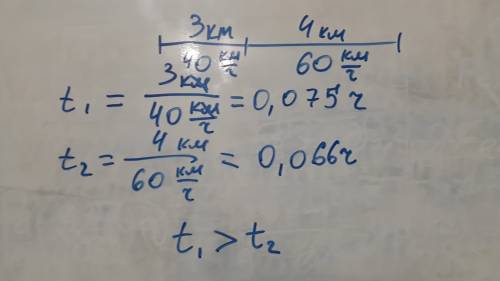 3км 4км
40 км/ч 60 км/ч
t₁ = 3км / 40 км/ч = 0,075 ч
t₂ = 4 км / 60 км/ч = 0,066ч
t₁ > t₂